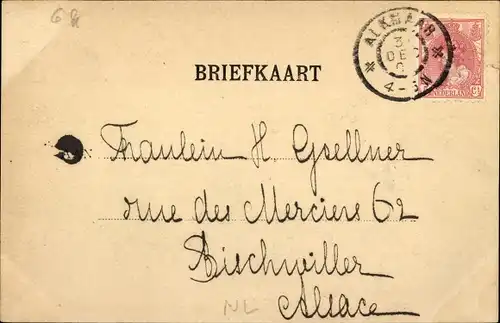 68
ALKMAAR
3
DEC
4-5N
NEDERLAND
BRIEFKAART
Fräulein H. Gsellner
rue des Merciers 62
Bischwiller
Alsace
NL